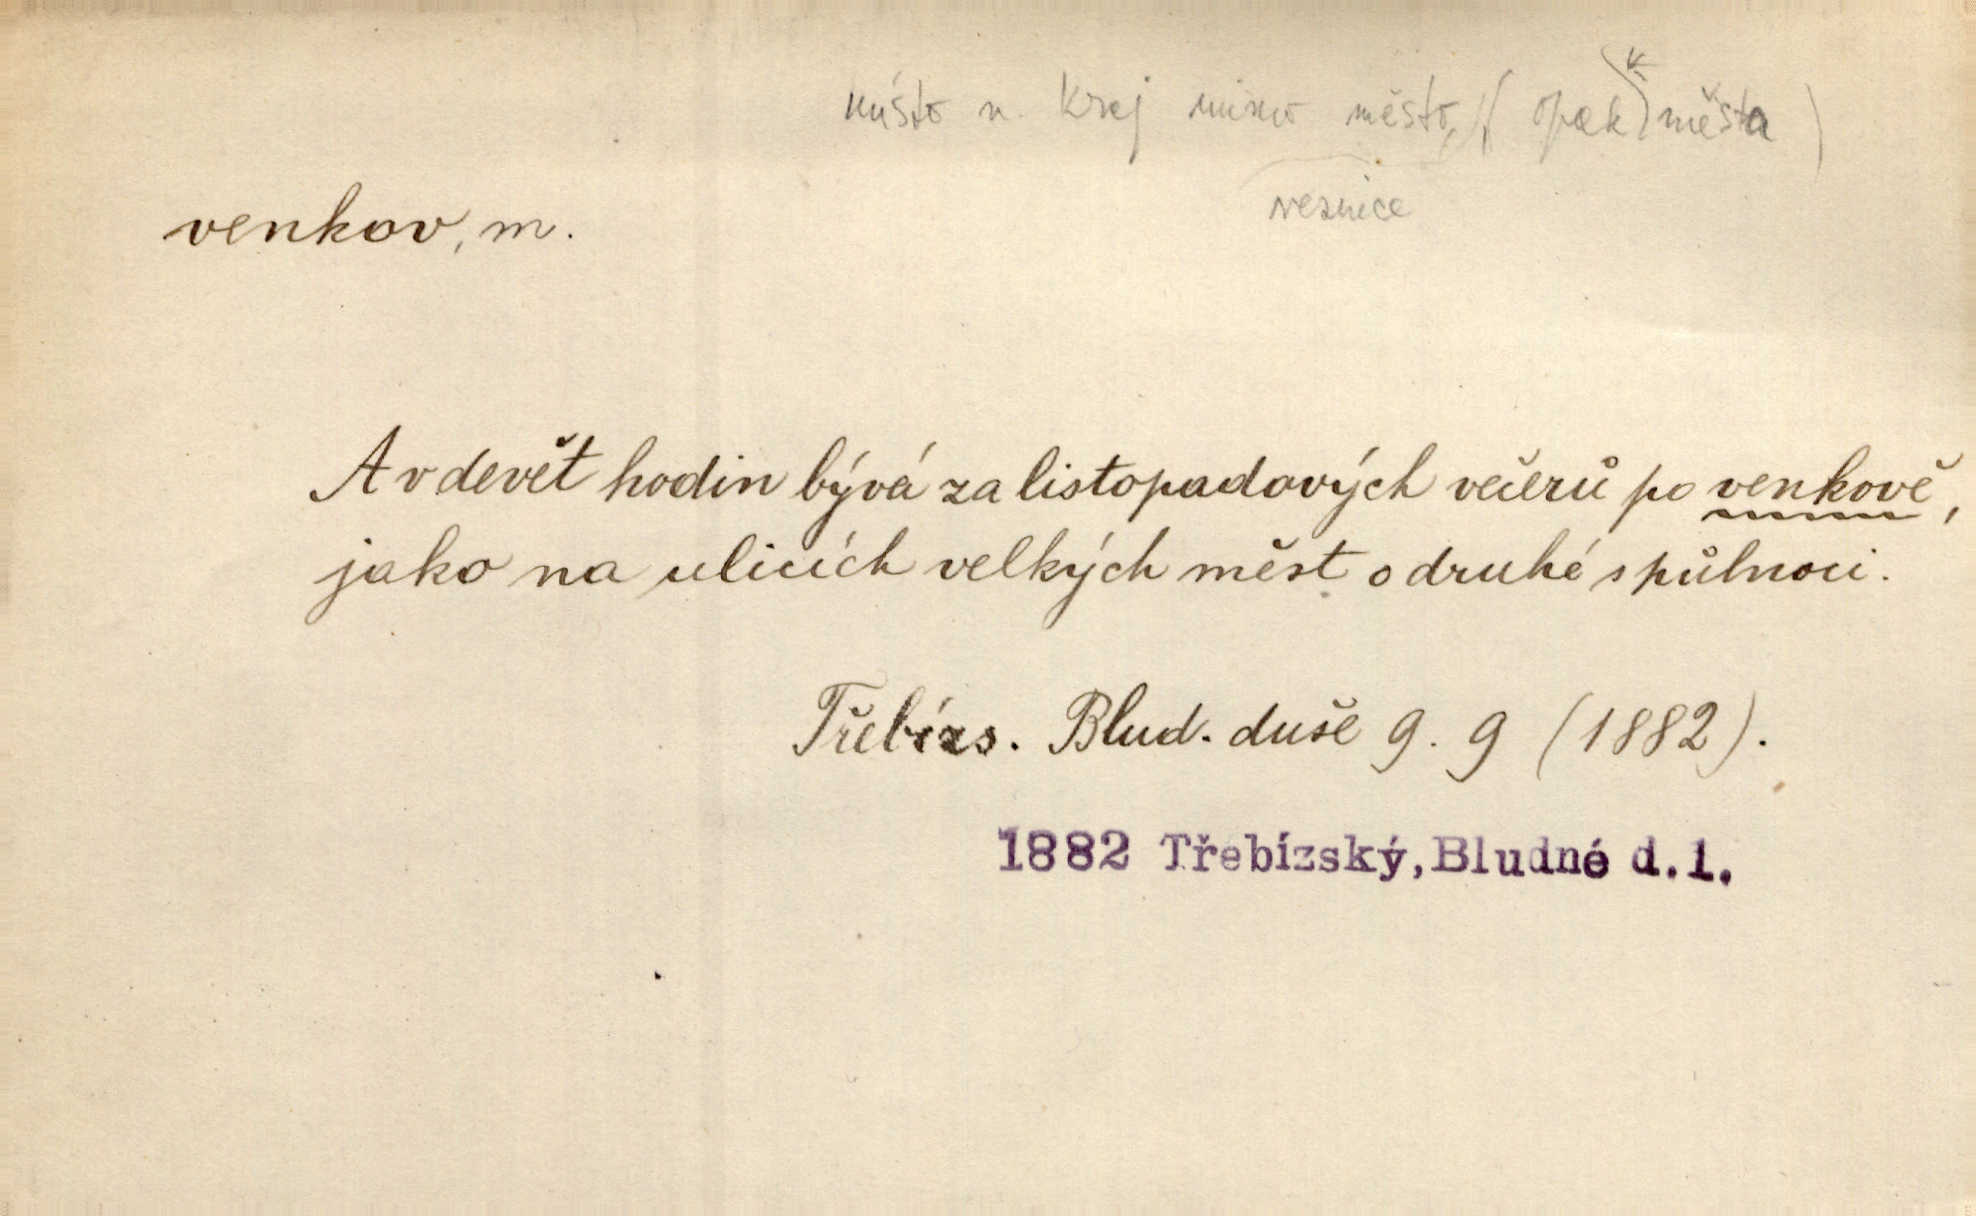 místo n. kraj mimo město, (opak města)
vesnice
venkov, m.
A v devět hodin bývá za listopadových večerů po venkově,
jako na ulicích velkých měst o druhé s půlnoci.
Třebízs. Blud. duše 9. 9 (1882).
1882 Třebízský, Bludné d.1.